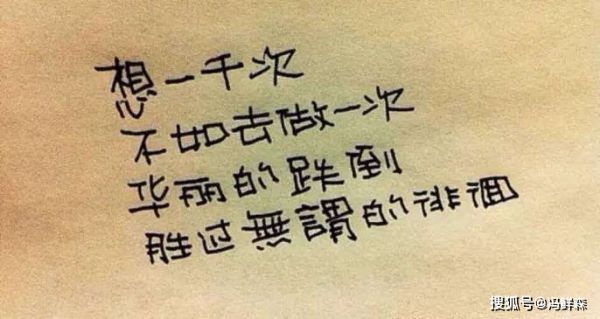 想一千次
不如去做一次
华丽的跌倒
胜过無謂的徘徊
搜狐号@冯鲜琛